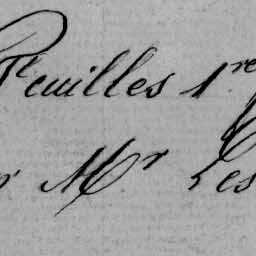 Feuilles 1.re
Mr Les